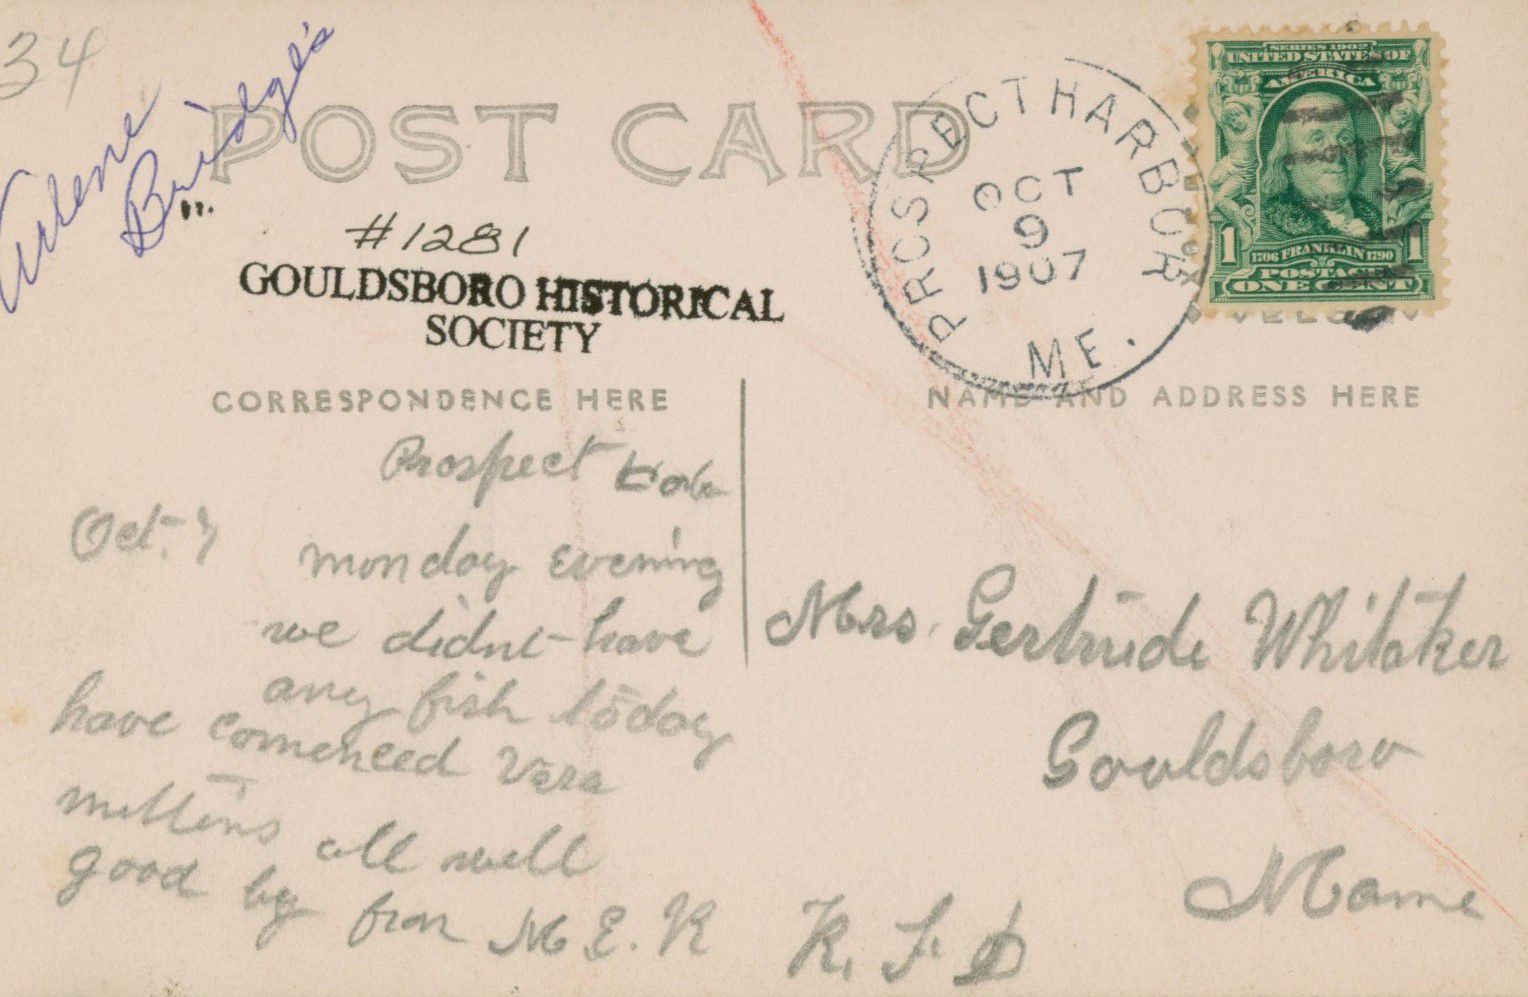 34
Arlene
Bridge's
POST CARD
#1281
GOULDSBORO HISTORICAL
SOCIETY
PROSPECT HARBOR
OCT
9
1907
ME.
SERIES 1902
UNITED STATES OF
AMERICA
1 1706 FRANKLIN 1790 1
POSTAGE
ONE CENT
CORRESPONDENCE HERE
NAME AND ADDRESS HERE
Prospect
Oct. 7 monday evening
we didnt have
any fish today
have comenced Vera
mittens all well
good by from M. E. R
Mrs. Gertrude Whitaker
Gouldsboro
Maine
R. F. D